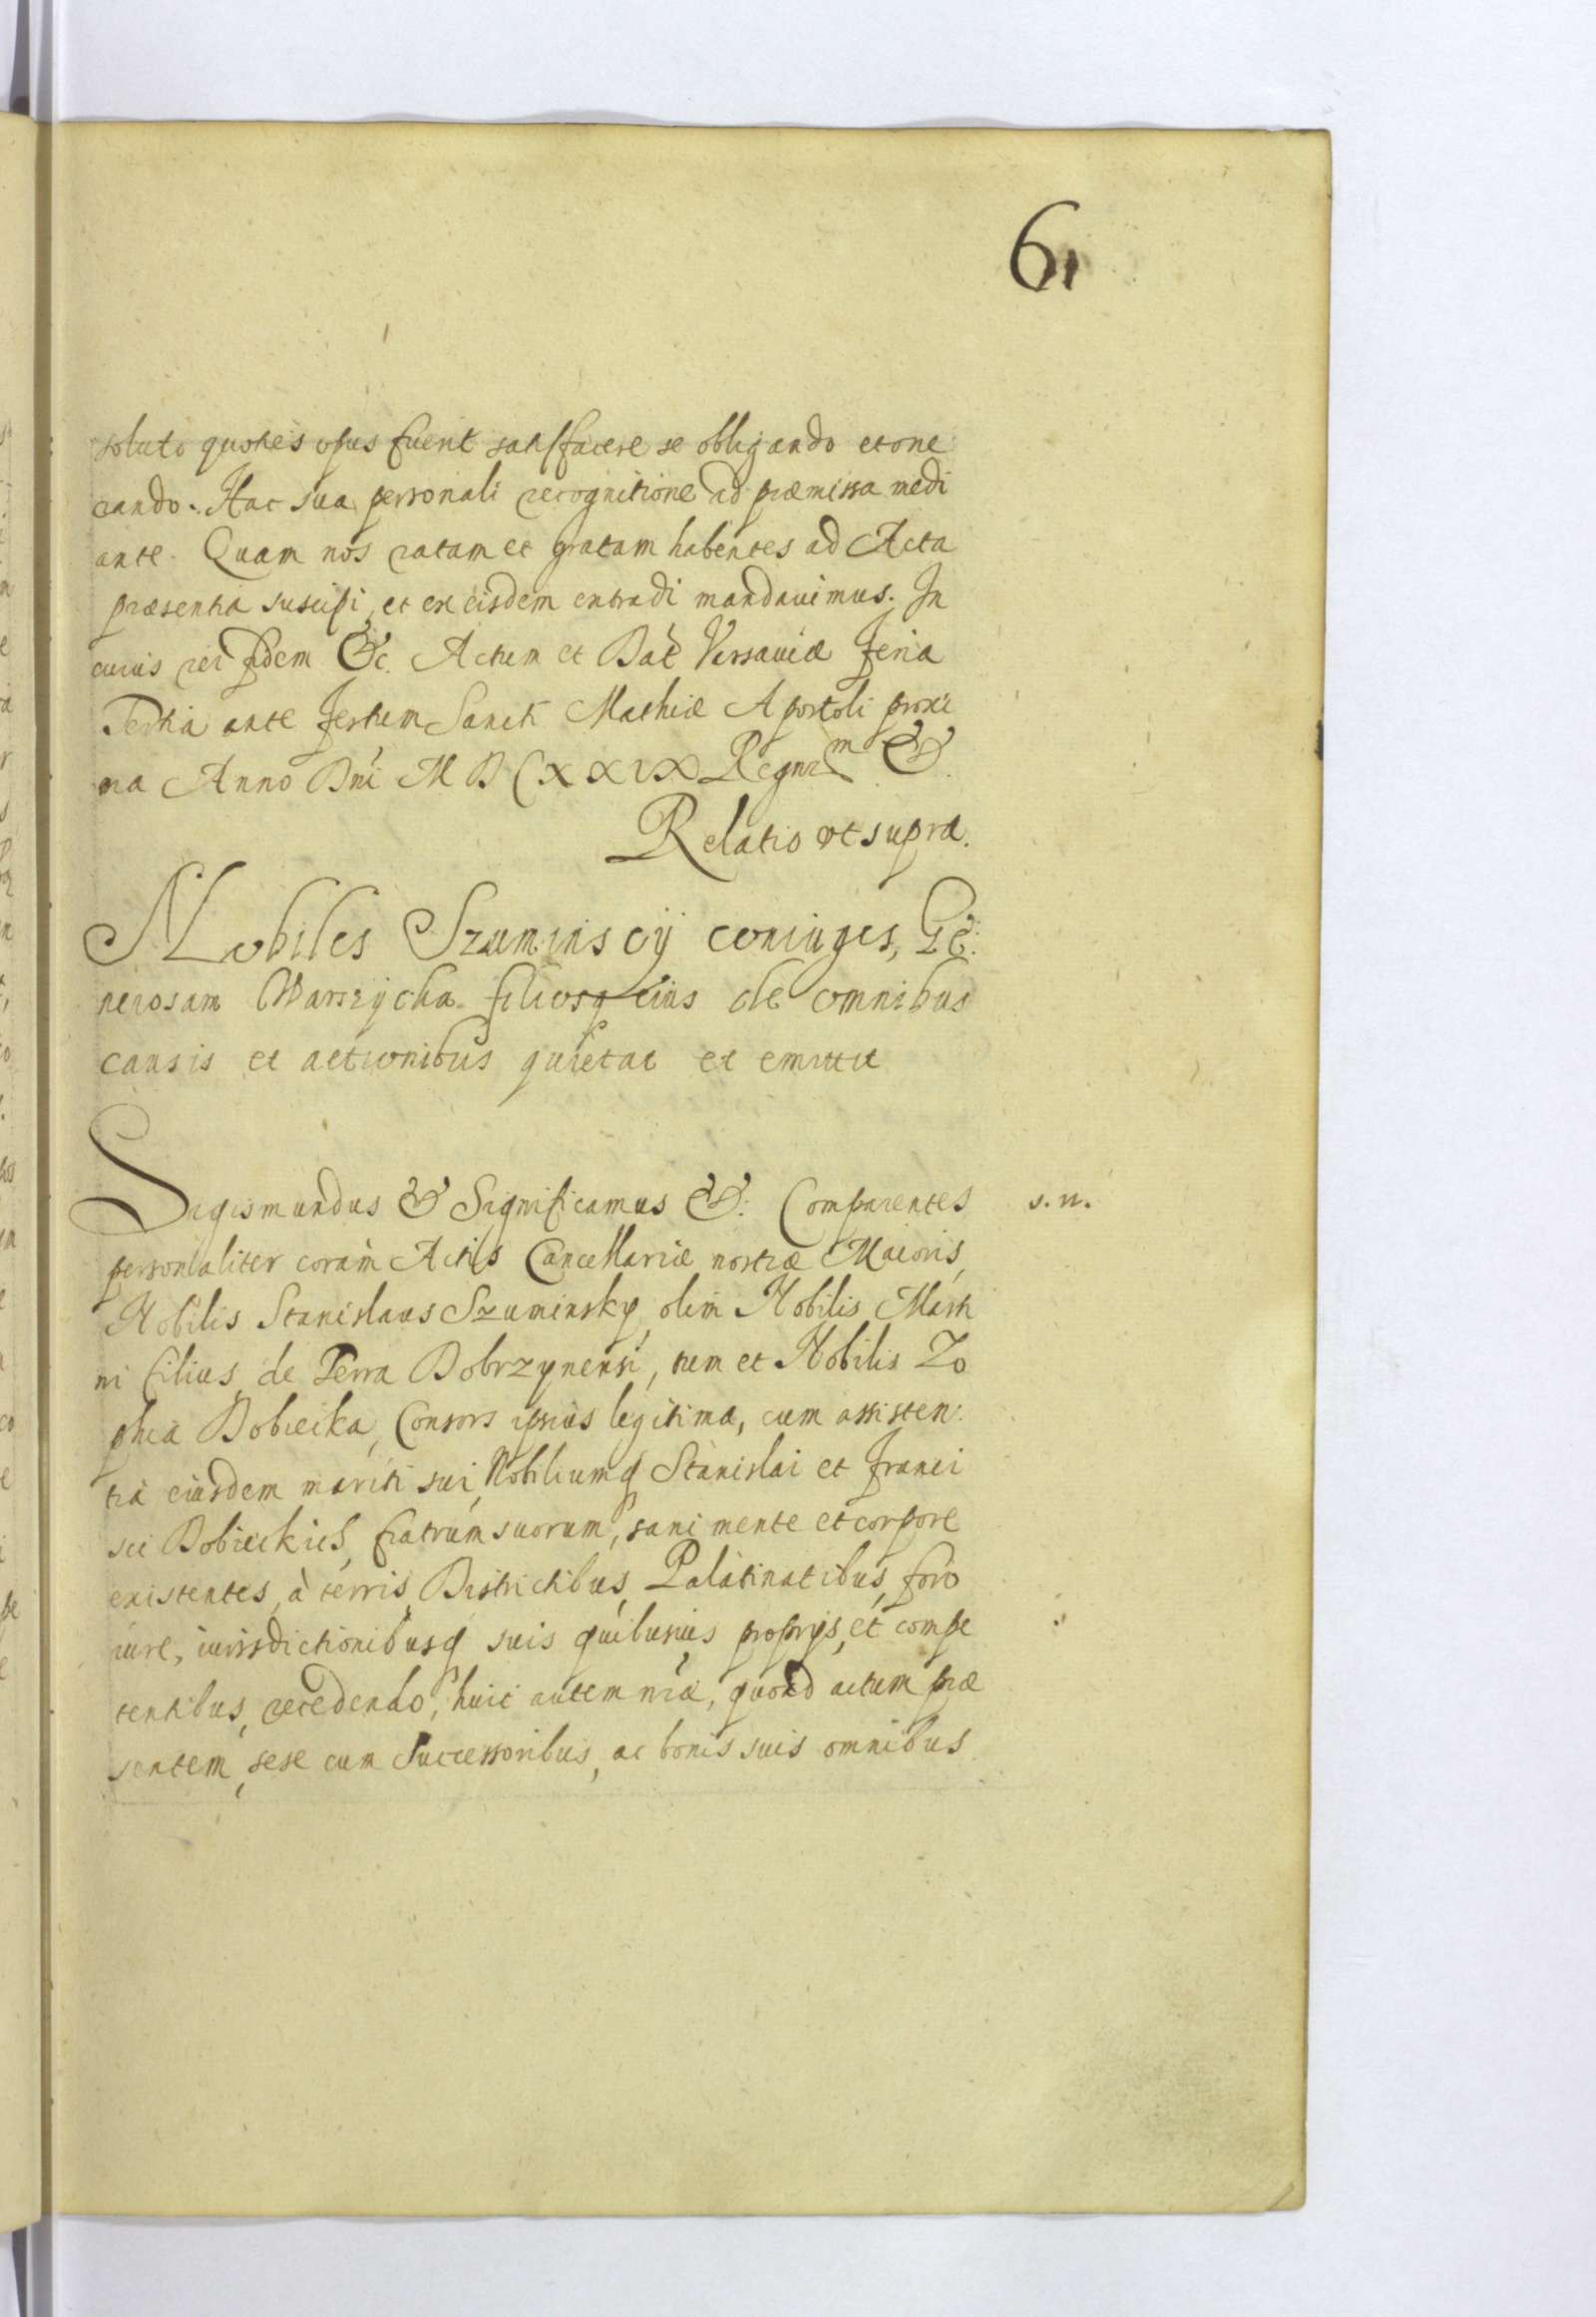 61
soluto quoties opus fuerit satisfacere se obligando et one
rando. Hac sua personali recognitione ad præmissa medi
ante. Quam nos ratam et gratam habentes ad Acta
præsentia suscipi, et ex eisdem extradi mandauimus. In
cuius rei fidem &c. Actum et Dat Varsauiæ Feria
Tertia ante Festum Sancti Mathiæ Apostoli proxi
ma Anno Dni MDCXXIX Regnrm &.
Relatio vt supra.
Nobiles Szuminscÿ coniuges, Ge:
nerosam Warszycka filiosq eius de omnibus
causis et actionibus quietat et emittit
Sigismundus & Significamus &: Comparentes s. n.
personaliter coram Actis Cancellariæ nostræ Maioris,
Nobilis Stanislaus Szuminsky, olim Nobilis Marti
ni filius, de Terra Dobrzynensi, tum et Nobilis Zo
phia Bobiecka, Consors ipsius legitima, cum assisten:
tia eiusdem mariti sui, Nobiliumq Stanislai et Franci
sci Bobieckich, fratrum suorum, sani mente et corpore
existentes, à terris, Districtibus, Palatinatibus, foro
iure, iurisdictionibusq suis quibusuis proprijs, et compe
tentibus, recedendo, huic autem nræ, quoad actum præ
sentem, sese cum Successoribus, ac bonis suis omnibus